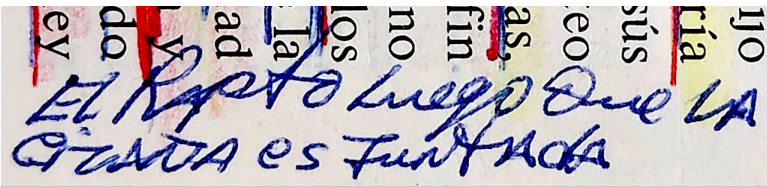 ey
do
y
ad
la
los
no
fin
as,
eo
sús
ría
ijo
El Rapto Luego Que LA
CIZAÑA es JuntAdA